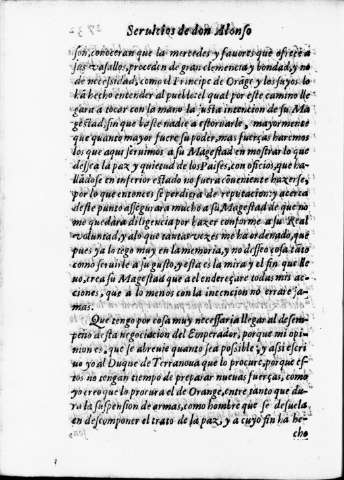 Seruicios de don Alonso
son, conoceran que la mercedes y fauores que ofrece a
sus vasallos, proceden de gran clemencia y bondad, y no
de necessidad, como el Principe de Orãge y los suyos lo
hã hecho entender al pueblo: el qual por este camino lle
gara a tocar con la mano la justa intencion de su Ma
gestad: sin que baste nadie a estoruarle, mayormente
que quanto mayor fuere su poder, mas fuerças haremos
los que aqui seruimos a su Magestad en mostrar lo que
dessea la paz y quietud de los Paises, con oficios, que ha
llãdose en inferior estado no fuera conueniente hazerse,
por lo que entonces se perdiera de reputacion: y acerca
deste punto assegurara mucho a su Magestad de que no
me quedara diligencia por hazer conforme a su Real
voluntad, y a lo que tantas vezes me ha ordenado, que
pues ya lo tẽgo muy en la memoria, y no desseo cosa tãto
como seruirle a su gusto, y esta es la mira y el fin que lle
uo, crea su Magestad que a el endereçare todas mis ac
ciones, que a lo menos con la intencion no errare ja-
mas.
Que tengo por cosa muy necessaria llegar al desem-
peño desta negociacion del Emperador, porque mi opi-
nion es, que se abreuie quanto sea possible, y assi escri
uo yo al Duque de Terranoua que lo procure, porque es-
tos no tengan tiempo de preparar nueuas fuerças, como
yo creo que lo procura el de Orange, entre tanto que du-
ra la suspension de armas, como hombre que se desuela
en descomponer el trato de la paz, y a cuyo fin ha he-
cho